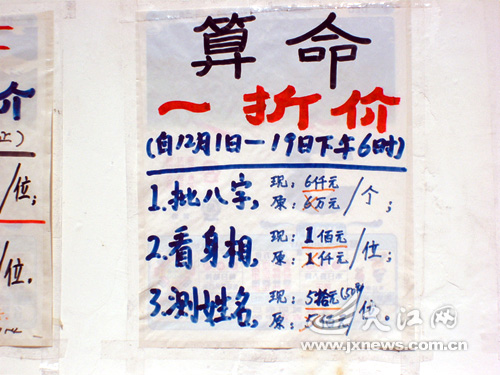 算命
一折价
(自12月1日—19日下午6时)
1.批八字, 现: 6仟元 原: 6万元 /个;
2.看身相, 现: 1佰元 原: 1仟元 /位;
3.测姓名, 现: 5拾元(50元) 原: /位.
价
/位;
/位.
大江网
www.jxnews.com.cn